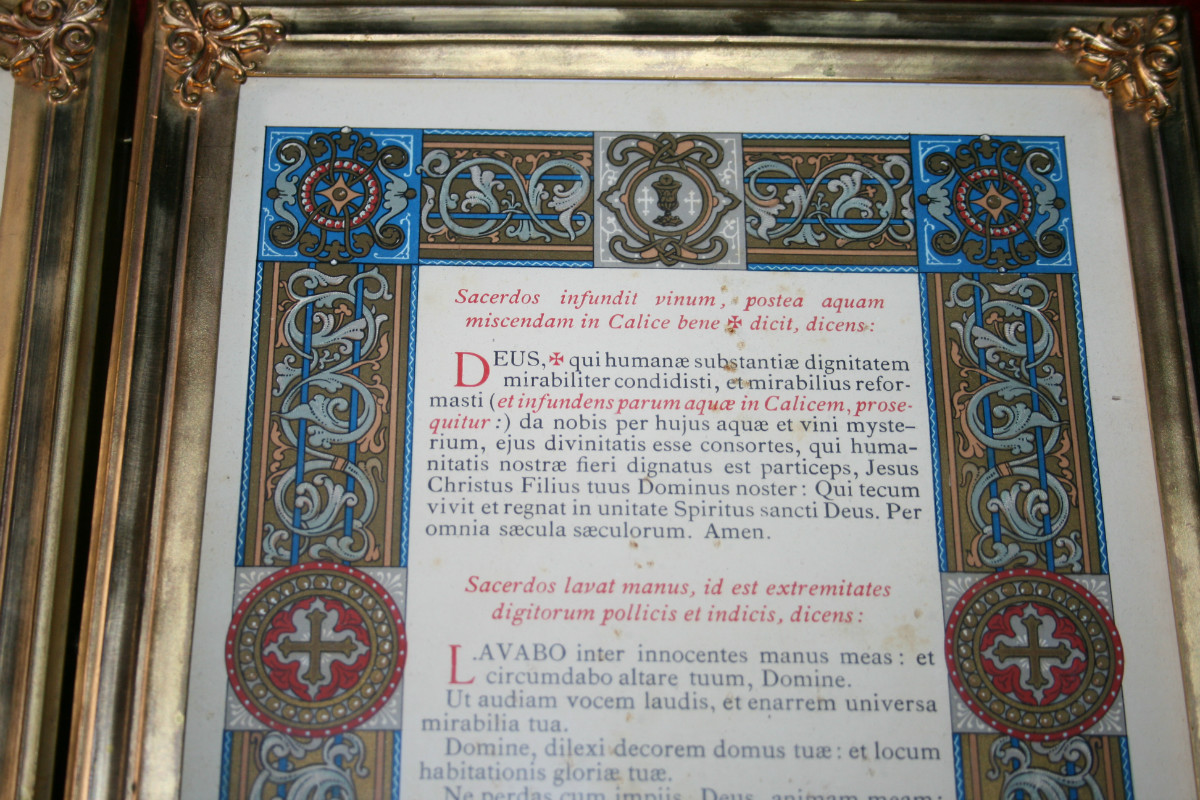 Sacerdos infundit vinum, postea aquam
miscendam in Calice bene ✠ dicit, dicens:
DEUS, ✠ qui humanæ substantiæ dignitatem
mirabiliter condidisti, et mirabilius refor-
masti (et infundens parum aquæ in Calicem, prose-
quitur:) da nobis per hujus aquæ et vini myste-
rium, ejus divinitatis esse consortes, qui huma-
nitatis nostræ fieri dignatus est particeps, Jesus
Christus Filius tuus Dominus noster: Qui tecum
vivit et regnat in unitate Spiritus sancti Deus. Per
omnia sæcula sæculorum. Amen.
Sacerdos lavat manus, id est extremitates
digitorum pollicis et indicis, dicens:
LAVABO inter innocentes manus meas: et
circumdabo altare tuum, Domine.
Ut audiam vocem laudis, et enarrem universa
mirabilia tua.
Domine, dilexi decorem domus tuæ: et locum
habitationis gloriæ tuæ.
Ne perdas cum impiis, Deus, animam meam: